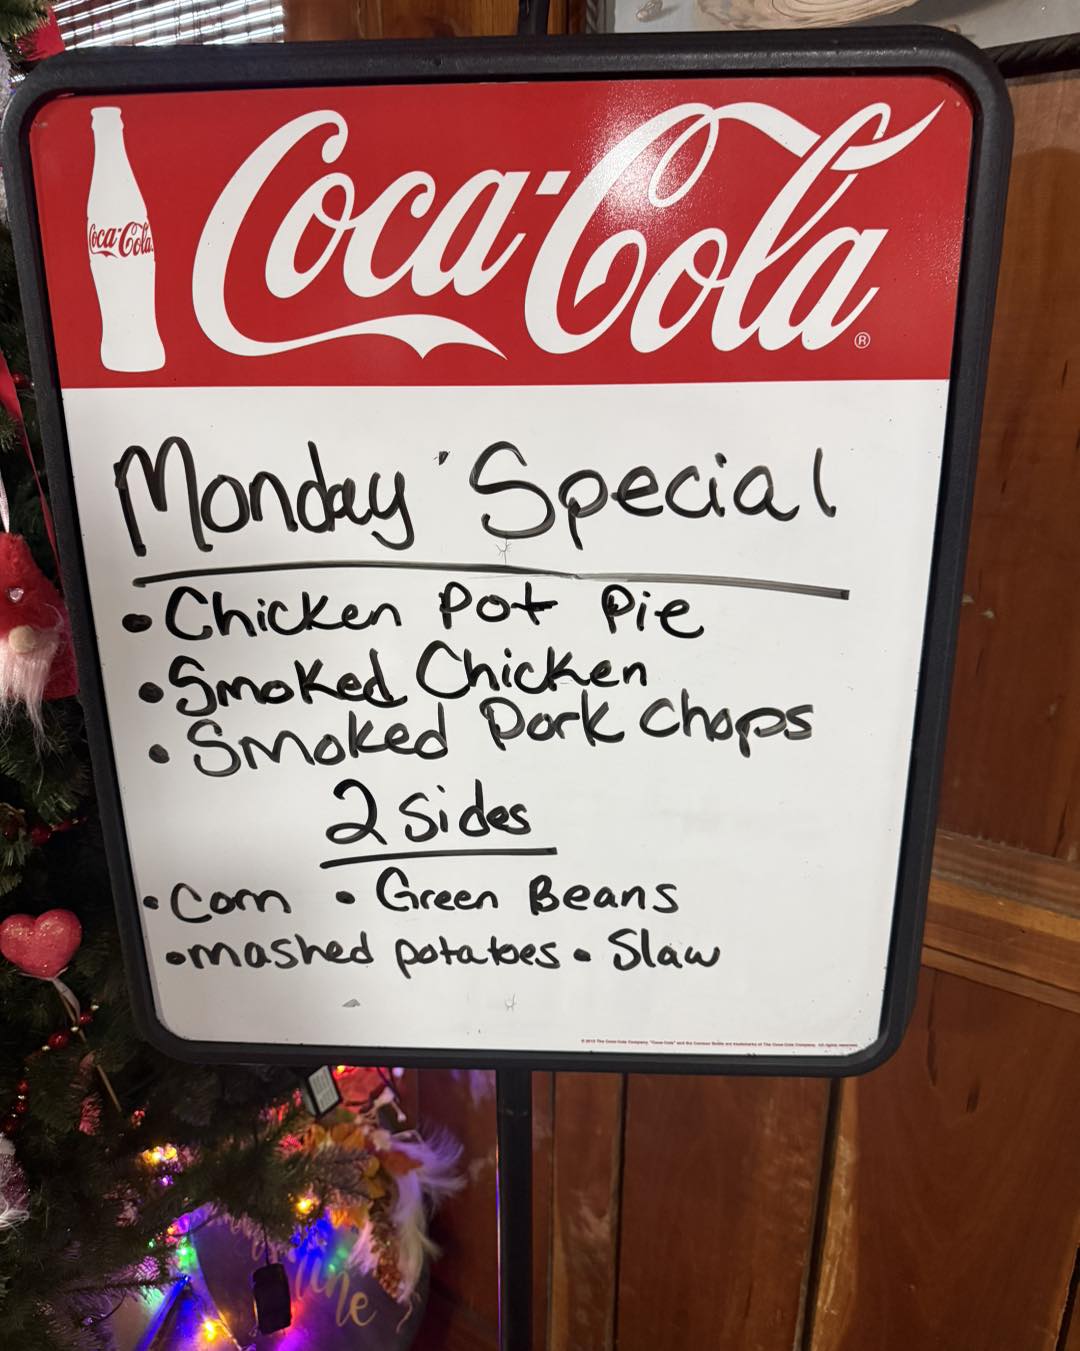 Coca-Cola
Coca-Cola®
Monday Special
• Chicken Pot Pie
• Smoked Chicken
• Smoked Pork Chops
2 Sides
• Corn • Green Beans
• mashed potatoes • Slaw